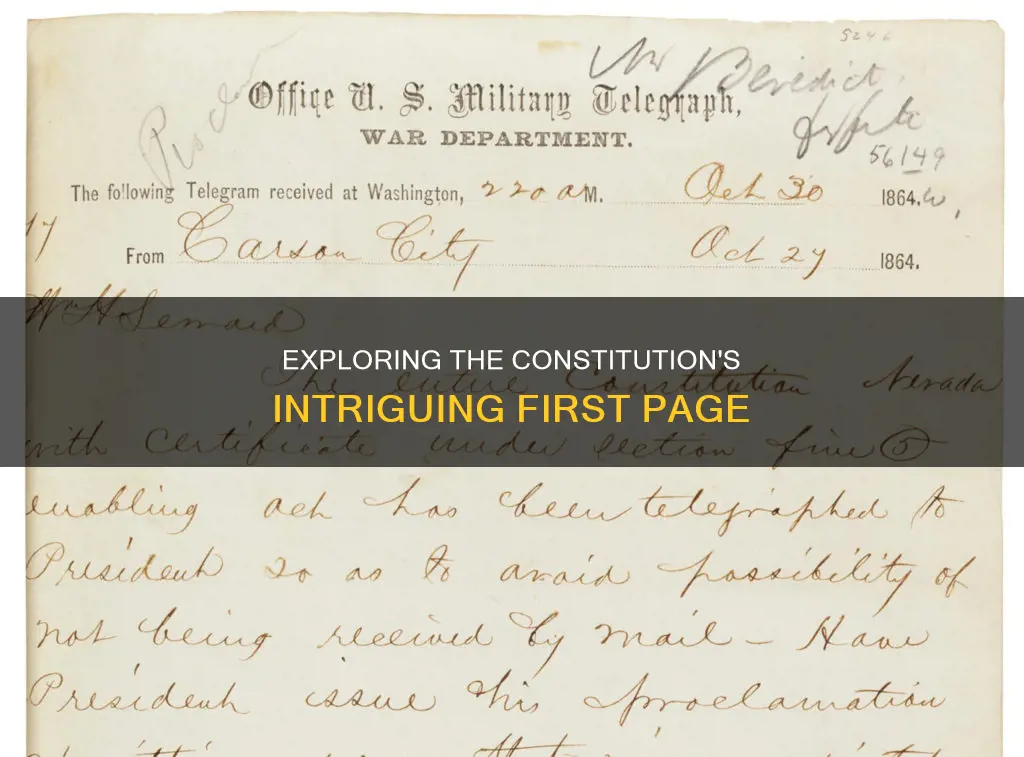 5246
Mr Benedict
Office U. S. Military Telegraph,
WAR DEPARTMENT.
56149
The following Telegram received at Washington, 220 a M. Oct 30 1864.
17
From Carson City Oct 27 1864.
Wm H Seward
EXPLORING THE CONSTITUTION'S
The entire Constitution Nevada
INTRIGUING FIRST PAGE
with certificate under section five (5)
enabling act has been telegraphed to
President so as to avoid possibility of
not being received by mail – Have
President issue his proclamation